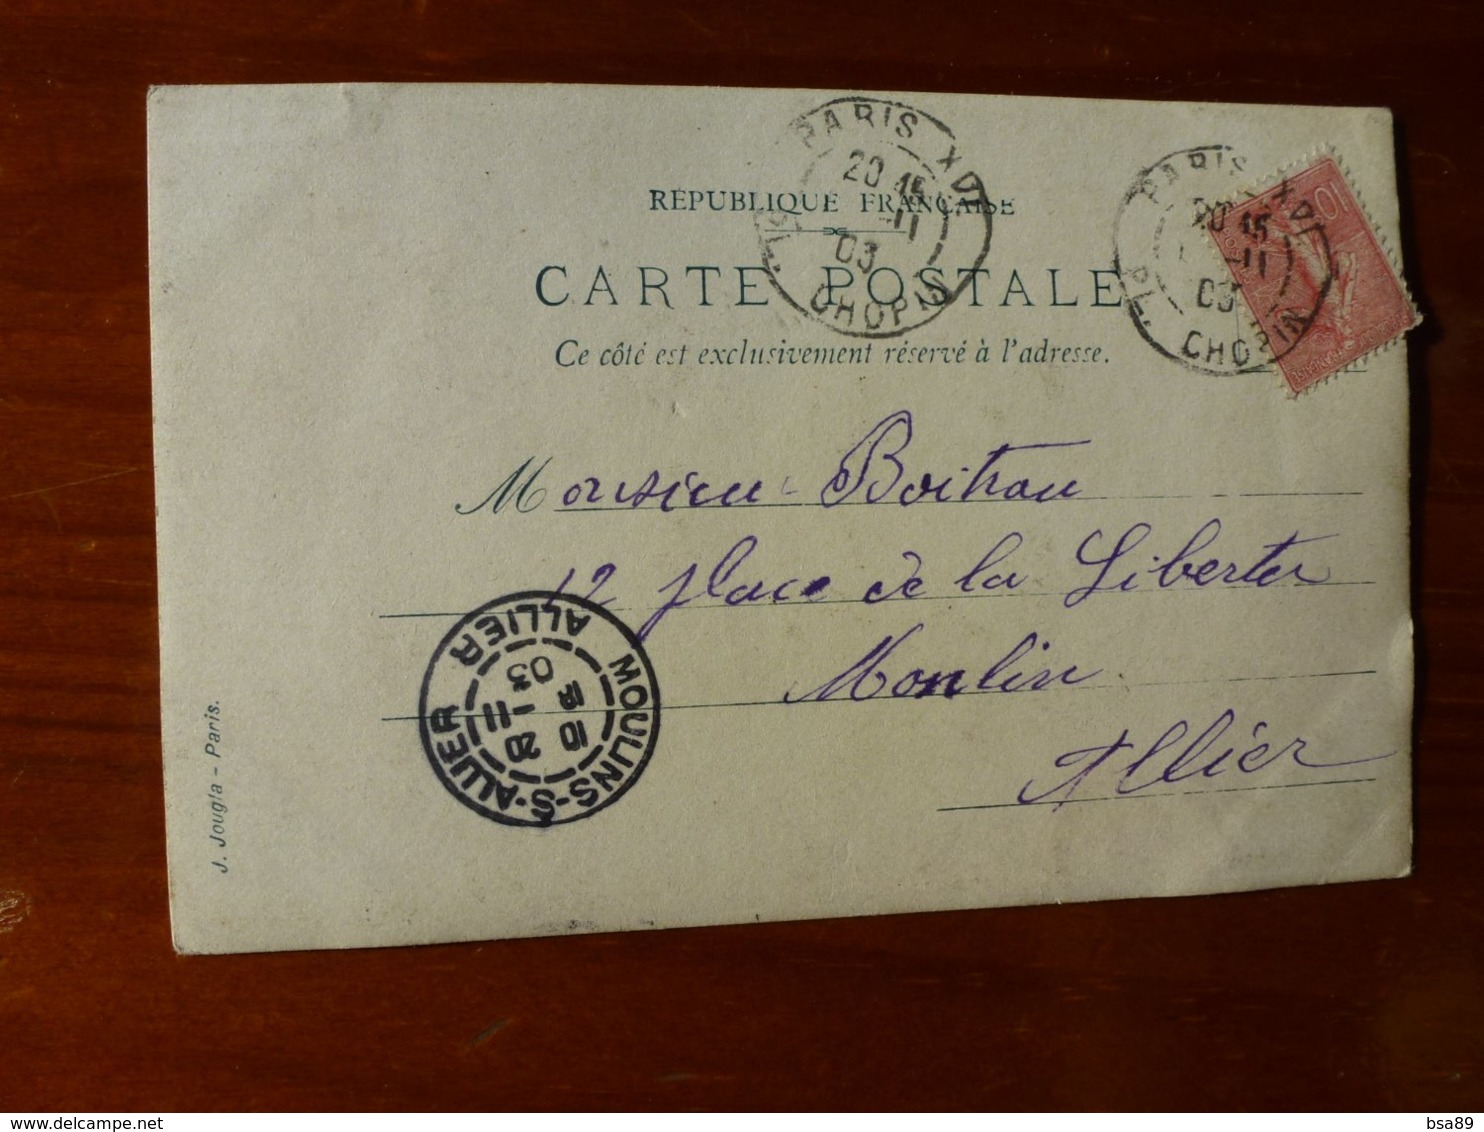 PARIS XVI
20 15
-11
03
PL. CHOPIN
PARIS XVI
20 15
-11
03
PL. CHOPIN
10
RÉPUBLIQUE FRANÇAISE
CARTE POSTALE
Ce côté est exclusivement réservé à l'adresse.
Monsieur Boitrau
12 place de la Liberter
Monlin
Allier
MOULINS-S-ALLIER ALLIER
10 20
12 -11
03
J. Jougla - Paris.
delcampe.net
bsa89